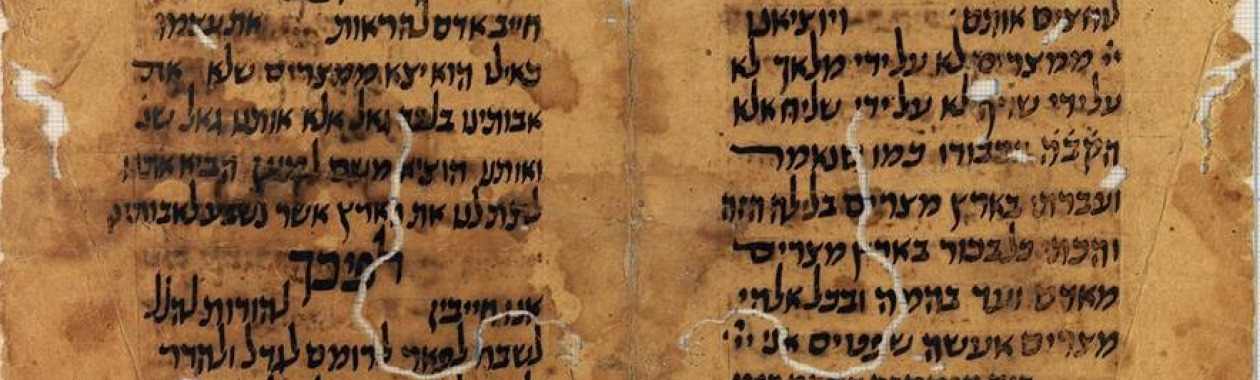 לחצים אותם ויוציאנו
ייי ממצרים לא על ידי מלאך לא
על ידי שרף לא על ידי שליח אלא
הקבֿה בכבודו כמו שנאמר
ועברתי בארץ מצרים בלילה הזה
והכתי כל בכור בארץ מצרים
מאדם ועד בהמה ובכל אלהי
מצרים אעשה שפטים אני ייי
חייב אדם להראות את עצמו
כאילו הוא יצא ממצרים שלא את
אבותינו בלבד גאל אלא אותנו גאל שנ
ואותנו הוציא משם למען הביא אתנו
לתת לנו את הארץ אשר נשבע לאבותינו
לפיכך
אנו חייבין להודות להלל
לשבח לפאר לרומם לגדל ולהדר